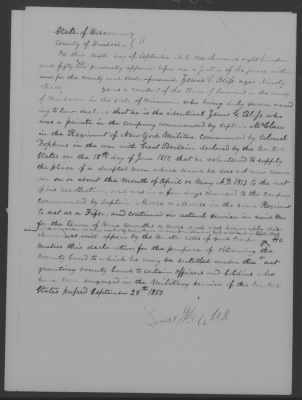 State of Wisconsin
County of Kenosha } SS
On this day of September A.D. one thousand eight hundred
and fifty five personally appeared before me a justice of the peace within
and for the County and State aforesaid Zenas G. Bliss aged ninety
three years a resident of the town of Somers in the county
of Kenosha in the State of Wisconsin who being duly sworn accord
ing to law declares that he is the identical Zenas G. Bliss who
was a private in the company commanded by Captain McClure
in the Regiment of New York Militia commanded by Colonel
Hopkins in the war with Great Britain declared by the United
States on the 18th day of June 1812 that he volunteered to supply
the place of a drafted man whose name he does not now remem
ber on or about the month of April or May A.D. 1813 to the best
of his recollection, and was in a few days changed to the company
commanded by Captain in the same Regiment
to act as a Fifer, and continued in actual service in said War
for the term of Nine months or more and was honorably dis
charged as will appear by the Muster rolls of said Company He
makes this declaration for the purpose of obtaining the
bounty land to which he may be entitled under the "act
granting bounty land to certain officers and Soldiers who
have been engaged in the Military Service of the United
States passed September 28th 1850